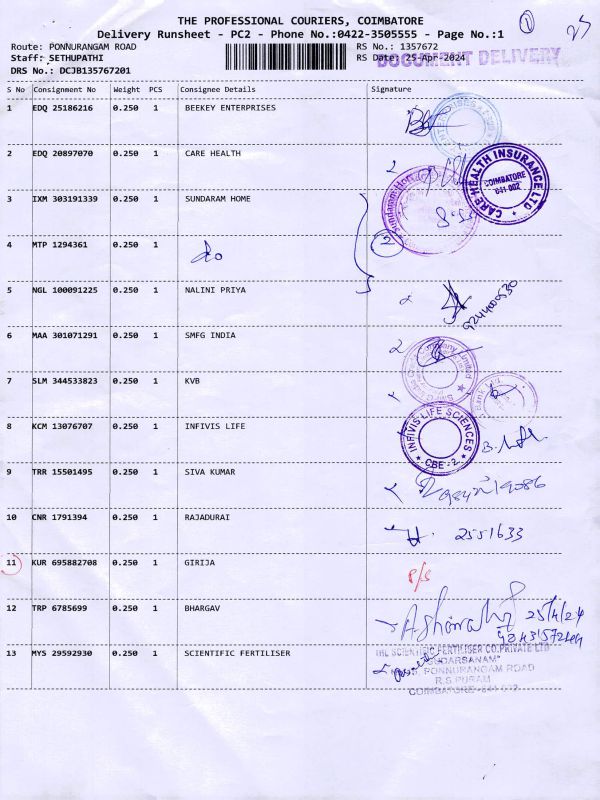 THE PROFESSIONAL COURIERS, COIMBATORE
Delivery Runsheet - PC2 - Phone No.:0422-3505555 - Page No.:1
1
25
Route: PONNURANGAM ROAD
Staff: SETHUPATHI
DRS No.: DCJB135767201
RS No.: 1357672
RS Date: 25-Apr-2024
DOCUMENT DELIVERY
S No Consignment No Weight PCS Consignee Details Signature
1 EDQ 25186216 0.250 1 BEEKEY ENTERPRISES
2 EDQ 20897070 0.250 1 CARE HEALTH
CARE HEALTH INSURANCE LTD
COIMBATORE
641 002
3 IXM 303191339 0.250 1 SUNDARAM HOME
Sundaram Home
4 MTP 1294361 0.250 1
2
5 NGL 100091225 0.250 1 NALINI PRIYA
6 MAA 301071291 0.250 1 SMFG INDIA
7 SLM 344533823 0.250 1 KVB
8 KCM 13076707 0.250 1 INFIVIS LIFE
INFIVIS LIFE SCIENCES
CBE - 2
9 TRR 15501495 0.250 1 SIVA KUMAR
10 CNR 1791394 0.250 1 RAJADURAI
2551633
11 KUR 695882708 0.250 1 GIRIJA
P/S
12 TRP 6785699 0.250 1 BHARGAV
25/4/24
13 MYS 29592930 0.250 1 SCIENTIFIC FERTILISER
THE SCIENTIFIC FERTILISER CO.PRIVATE LTD
PONNURANGAM ROAD
R.S PURAM
COIMBATORE - 641 002